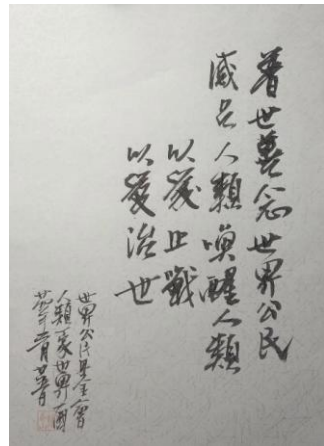 普世善念世界公民
感召人類喚醒人類
以愛止戰
以愛治世
世界公民基金會
人類一家世界一國